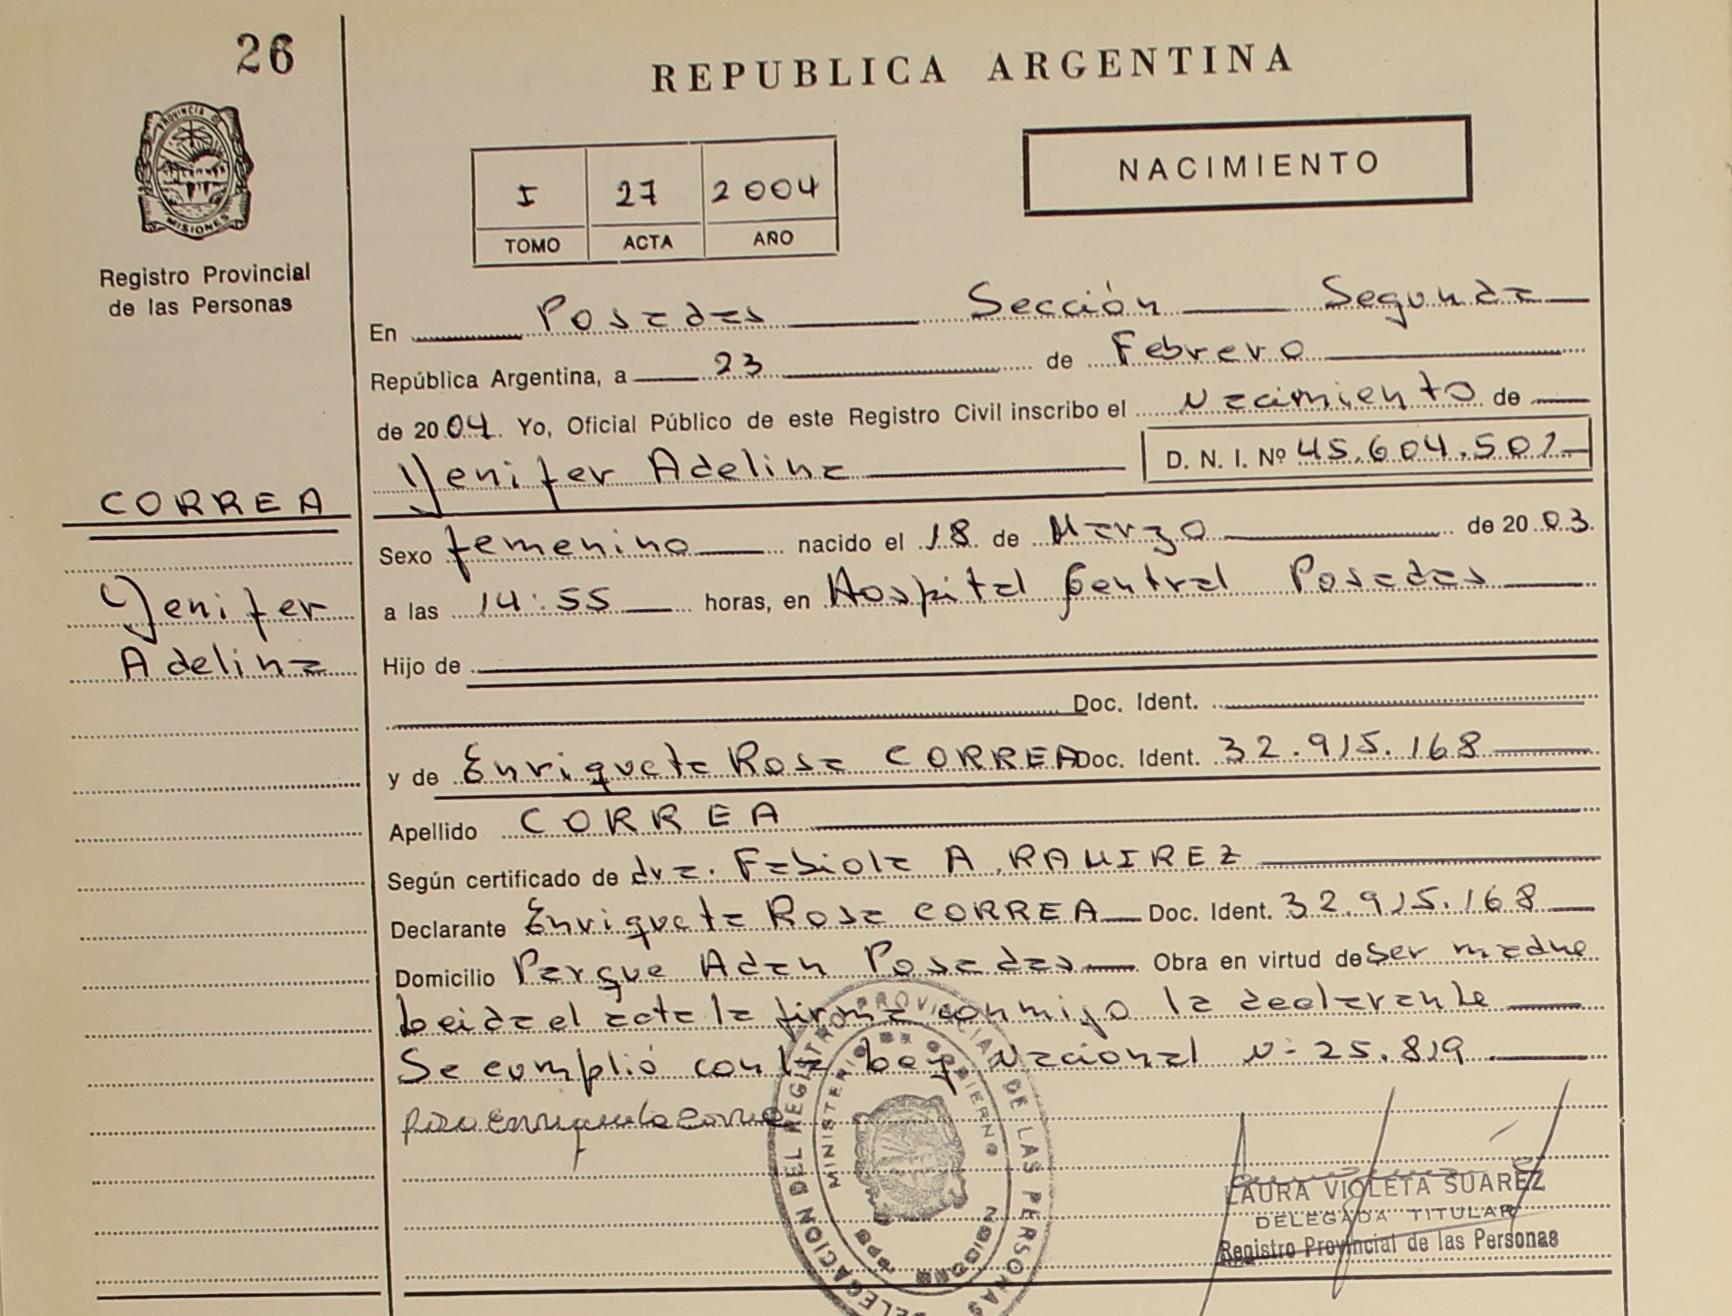 26
REPUBLICA ARGENTINA
PROVINCIA DE
MISIONES
Registro Provincial
de las Personas
I 27 2004
TOMO ACTA AÑO
NACIMIENTO
En Posadas Sección Segunda
República Argentina, a 23 de Febrero
de 2004. Yo, Oficial Público de este Registro Civil inscribo el Nacimiento de
Yenifer Adelina D. N. I. Nº 45.604.501
CORREA
Yenifer
Adelina
Sexo femenino nacido el 18 de Marzo de 2003.
a las 14:55 horas, en Hospital Central Posadas
Hijo de
Doc. Ident.
y de Enriqueta Rosa CORREA Doc. Ident. 32.915.168
Apellido CORREA
Según certificado de dra. Fabiola A. RAMIREZ
Declarante Enriqueta Rosa CORREA Doc. Ident. 32.915.168
Domicilio Parque Adan Posadas Obra en virtud de ser madre
Leida el acta la firma conmigo la declarante
Se cumplió con la Ley Nacional N- 25.819
DELEGACION DEL REGISTRO PROVINCIAL DE LAS PERSONAS
MINISTERIO DE GOBIERNO
MISIONES
LAURA VIOLETA SUAREZ
DELEGADA TITULAR
Registro Provincial de las Personas